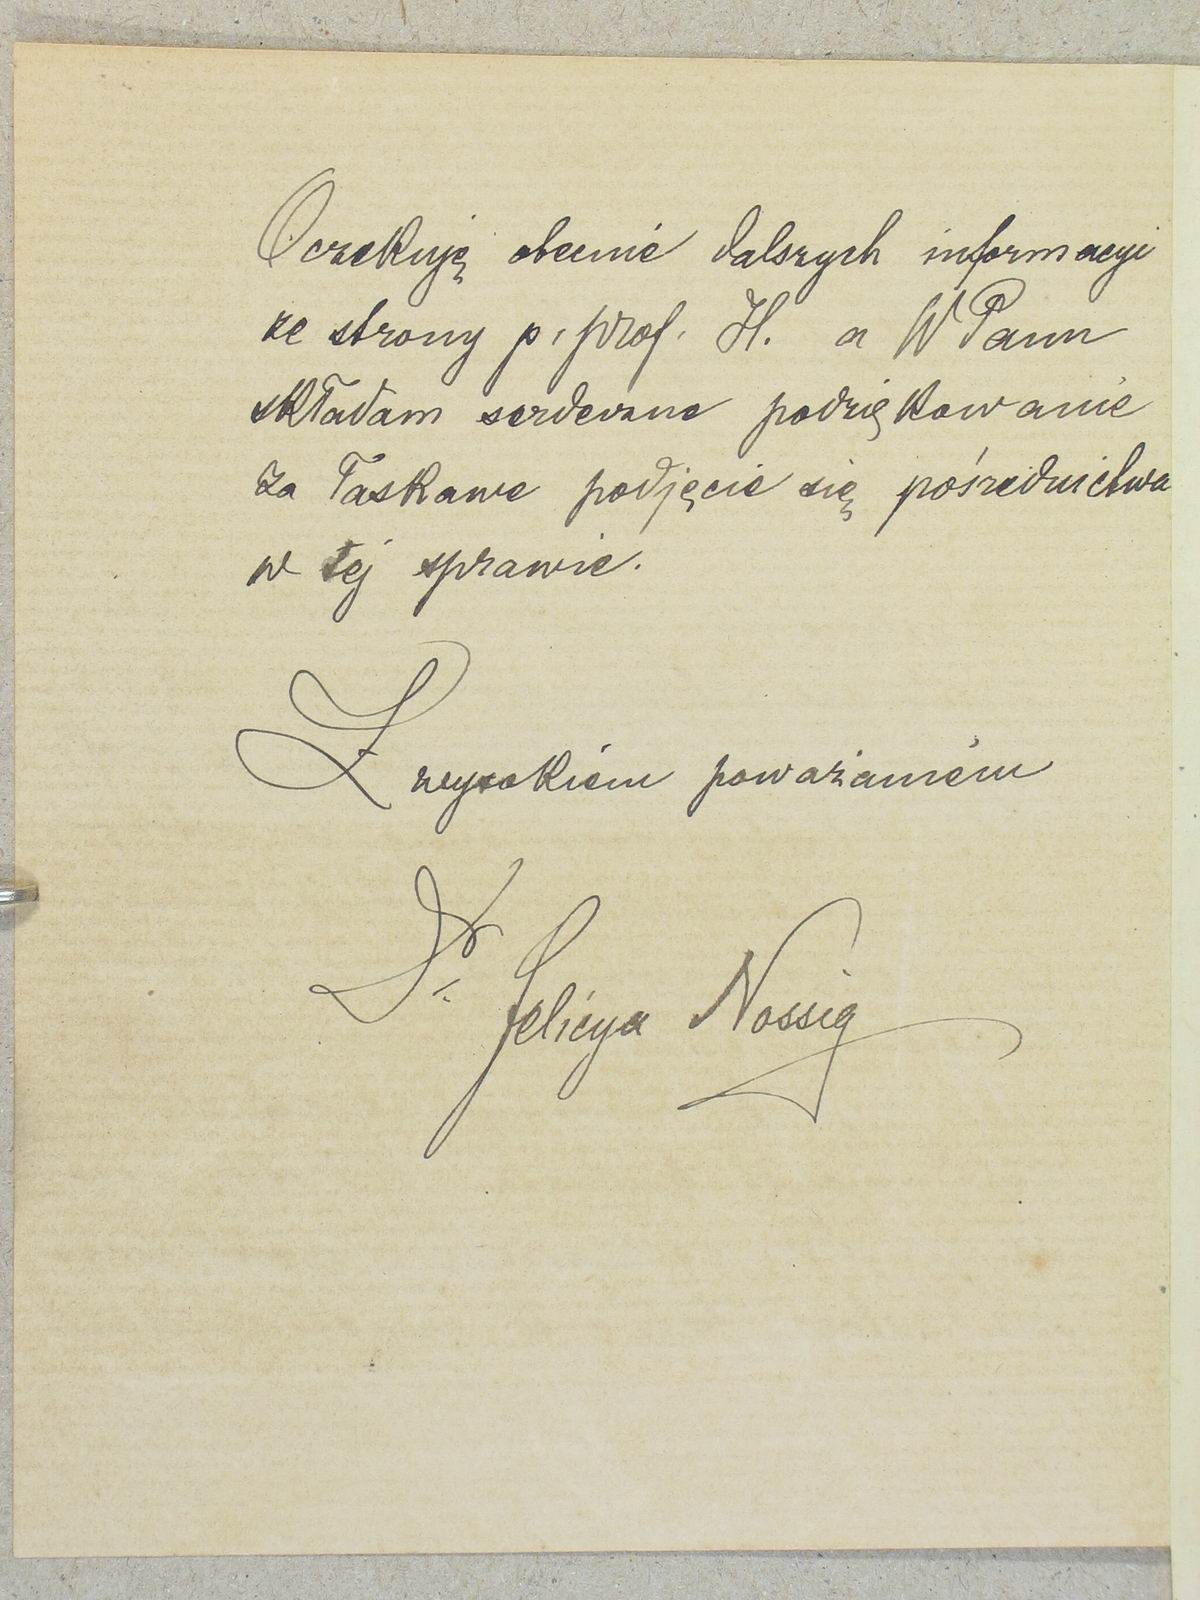 Oczekuję obecnie dalszych informacyi
ze strony p. prof. H. a WPanu
składam serdeczne podziękowanie
za łaskawe podjęcie się pośrednictwa
w tej sprawie.
Z wysokiém poważaniém
Dr. Felicya Nossig